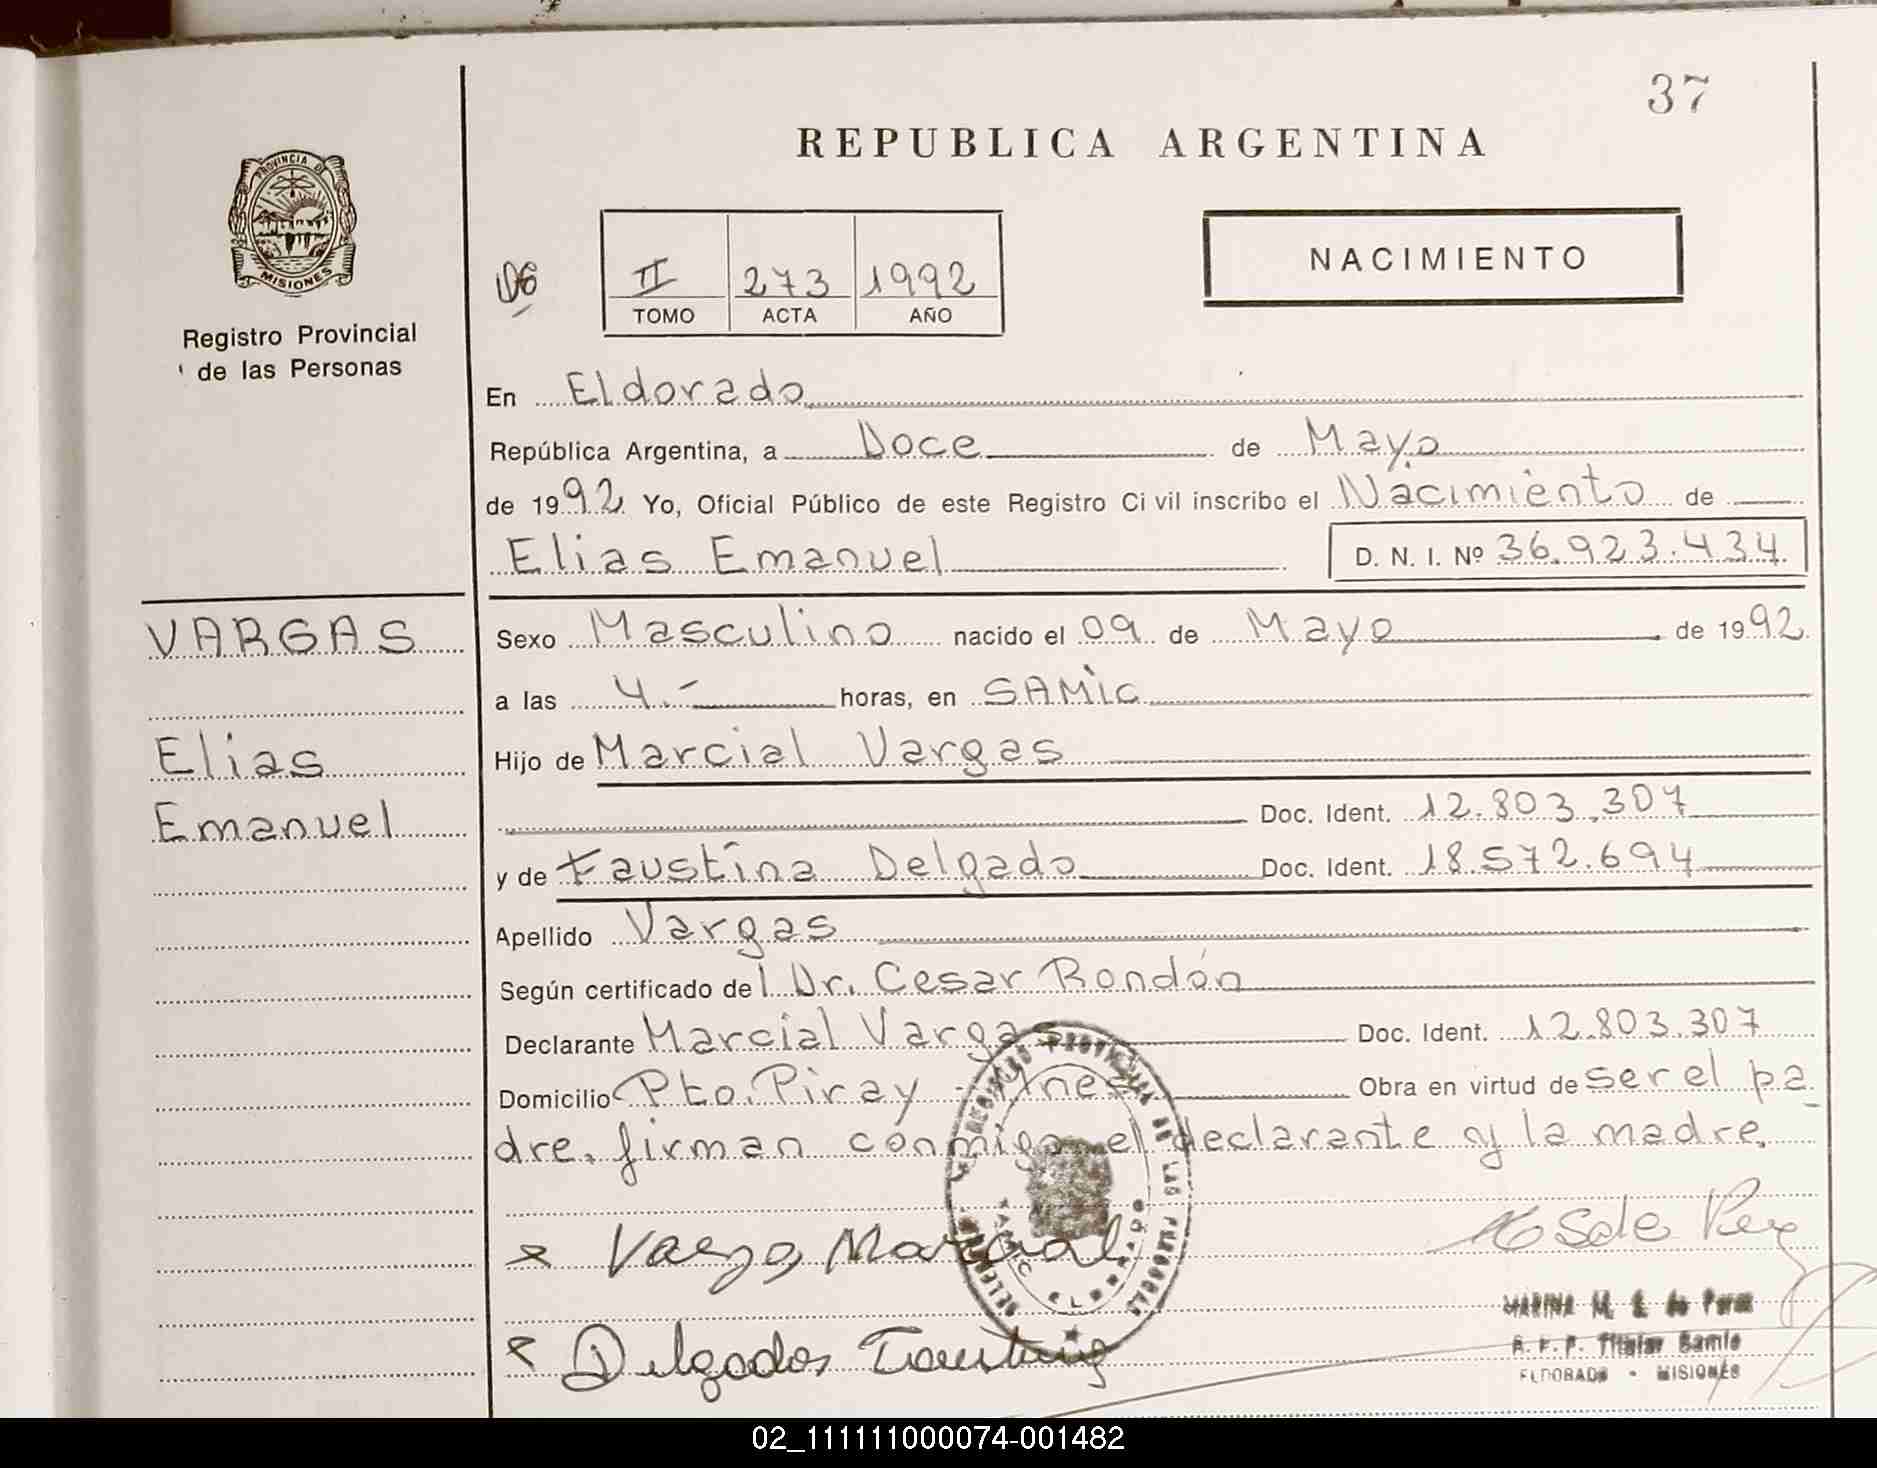 37
REPUBLICA ARGENTINA
PROVINCIA DE
MISIONES
Registro Provincial
de las Personas
II 273 1992
TOMO ACTA AÑO
NACIMIENTO
En Eldorado
República Argentina, a Doce de Mayo
de 1992 Yo, Oficial Público de este Registro Civil inscribo el Nacimiento de
Elias Emanuel D. N. I. Nº 36.923.434
VARGAS
Elias
Emanuel
Sexo Masculino nacido el 09 de Mayo de 1992
a las 4.- horas, en SAMIC
Hijo de Marcial Vargas
Doc. Ident. 12.803.307
y de Faustina Delgado Doc. Ident. 18.572.694
Apellido Vargas
Según certificado del Dr. Cesar Rondón
Declarante Marcial Vargas Doc. Ident. 12.803.307
Domicilio Pto. Piray - Mnes Obra en virtud de ser el pa
dre, firman conmigo el declarante y la madre.
Vargas Marcial
Delgados Faustina
MARINA M.
Titular Samic
ELDORADO - MISIONES
02_111111000074-001482